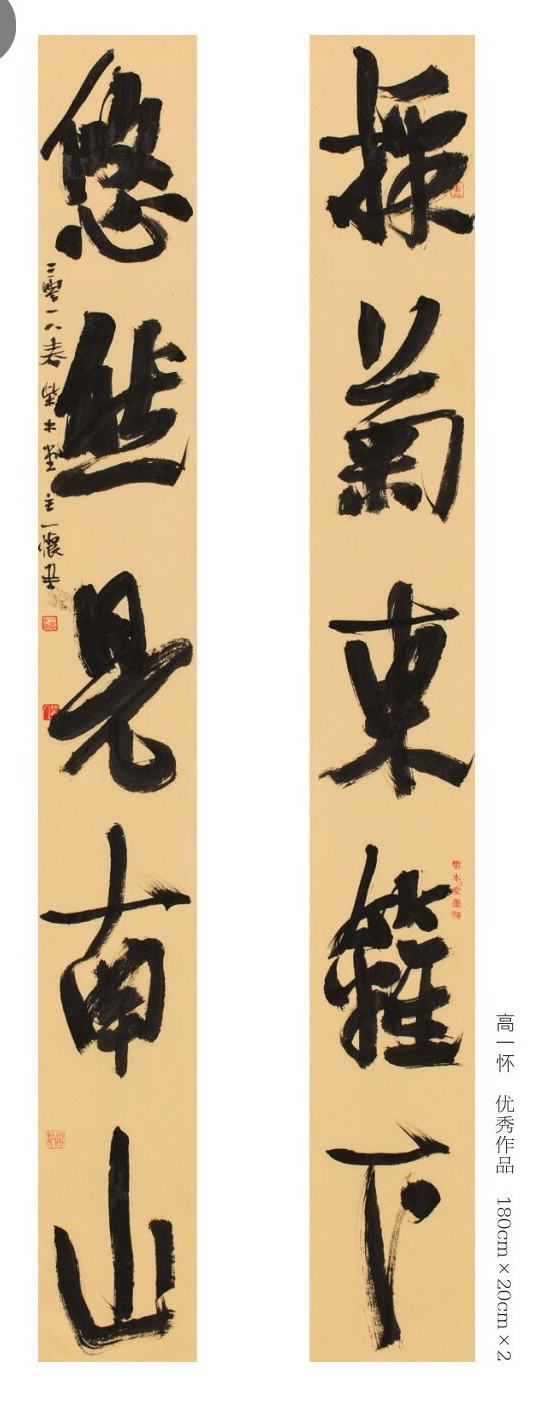 採菊東籬下
柴木堂墨跡
悠然見南山
二零一八春 柴木堂主一懷書
高一怀 优秀作品 180cm×20cm×2